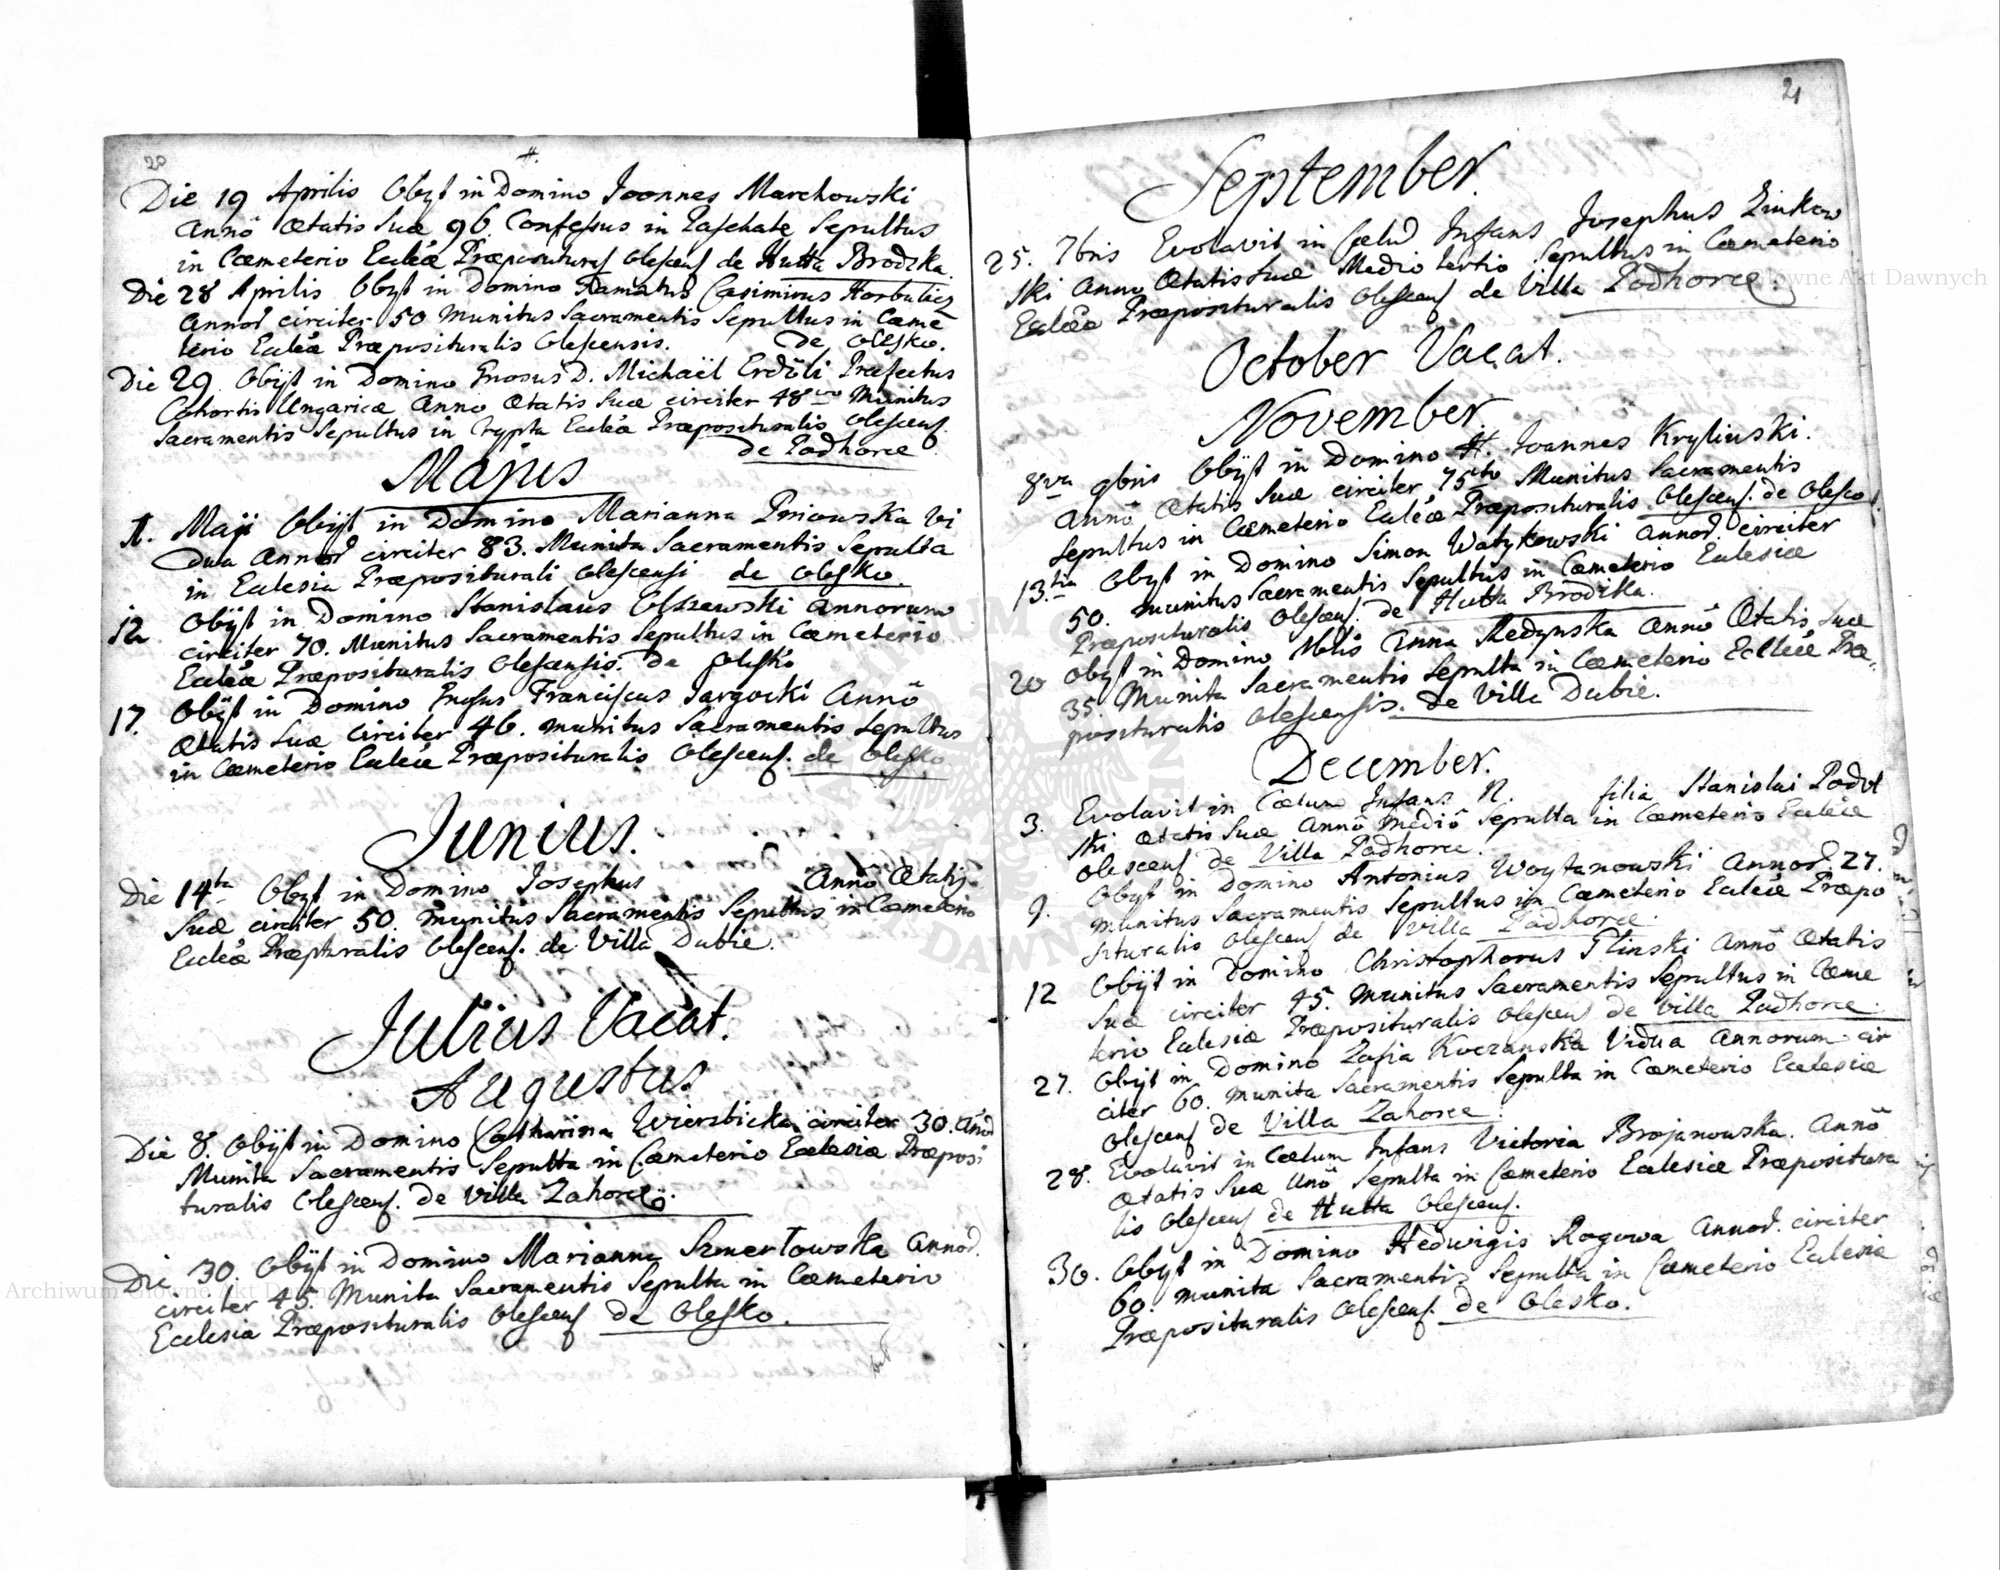 20
#.
Die 19 Aprilis Obyt in Domino Joannes Marchowski
Annô Ætatis Suæ 96. Confessus in Paschate Sepultus
in Cæmeterio Eccleæ Præposituralis Olescens de Hutta Brodzka.
Die 28 Aprilis Obyt in Domino Famatus Casimirus Horbulicz
Annor circiter 50 Munitus Sacramentis Sepultus in Cæme
terio Eccleæ Præposituralis Olescensis. De Olesko.
Die 29. Obijt in Domino Gnosus D. Michaël Erdöli Præfectus
Cohortis Ungaricæ Anno Ætatis Suæ circiter 48vo Munitus
Sacramentis Sepultus in Crypta Eccleæ Præposituralis Olescens.
de Podhorce
Majus
1. Maji Obijt in Domino Marianna Vi
dua Annor circiter 83. Munita Sacramentis Sepulta
in Eclesia Præpositurali Olescensi de Olesko.
12 Obijt in Domino Stanislaus Olszewski Annorum
circiter 70. Munitus Sacramentis Sepultus in Cæmeterio
Eccleæ Præposituralis Olescensis. De Olesko
17. Obijt in Domino Gnosus Franciscus Sargocki Annô
Ætatis Suæ circiter 46. munitus Sacramentis Sepultus
in Cæmeterio Eccleæ Præposituralis Olescens. de Olesko
Junius.
Die 14ta Obyt in Domino Josephus Annô Ætatis
Suæ circiter 50. munitus Sacramentis Sepultus in Cæmeterio
Eccleæ Præpturalis Olescens. de Villa Dubie.
Julius Vacat.
Augustus.
Die 8. Obijt in Domino Catharina Wierzbicka circiter 30. Anor
Munita Sacramentis Sepulta in Cæmeterio Eclesiæ Præposi
turalis Olescens. de Villa Zahorce.
Die 30. Obijt in Domino Marianna Szmertowska Annor.
circiter 45. Munita Sacramentis Sepulta in Cæmeterio
Ecclesia Præposituralis Olescens de Olesko.
21
September.
25. 7bris Evolavit in Cælu Infans Josephus Zinkow
ski Anno Ætatis Suæ Medio tertio Sepultus in Cæmeterio
Eccleæ Præposituralis Olescens de Villa Podhorce.
October Vacat.
November.
8va 9bris Obijt in Domino H. Joannes Kryliuski.
Annô Ætatis Suæ circiter 75to Munitus Sacramentis
Sepultus in Cæmeterio Eccleæ Præposituralis Olescens. de Olesco.
13.tia Obyt in Domino Simon Watykowski Annor. circiter
50. munitus Sacramentis Sepultus in Cæmeterio Eclesiæ
Præposituralis Olescens. de Hutta Brodzka.
20 Obyt in Domino Nblis Anna Redynska Annô Ætatis Suæ
35 Munita Sacramentis Sepulta in Cæmeterio Eccleæ Præ-
posituralis Olescensis. de Villa Dubie.
December.
3. Evolavit in Cælum Infans N. filia Stanislai Podol
ski Ætatis Suæ Annô Mediô Sepulta in Cæmeterio Eccleæ
Olescens de Villa Podhorce.
9. Obyt in Domino Antonius Woytanowski Annor. 27.
munitus Sacramentis Sepultus in Cæmeterio Eccleæ Præpo
situralis Olescens de Villa Podhorce.
12 Obijt in Domino Christophorus Glinski Annô Ætatis
Suæ circiter 45. munitus Sacramentis Sepultus in Cæme
terio Eclesiæ Præposituralis Olescens de Villa Podhorce.
27. Obijt in Domino Zofia Kuczanska Vidua Annorum cir
citer 60. munita Sacramentis Sepulta in Cæmeterio Eclesiæ
Olescens de Villa Zahorce.
28. Evolavit in Cælum Infans Victoria Brojanowska. Annô
Ætatis Suæ Unô Sepulta in Cæmeterio Eclesiæ Præpositura
lis Olescens de Hutta Olescens.
30. Obyt in Domino Hedwigis Rogowa Annor. circiter
60. munita Sacramentis Sepulta in Cæmeterio Eclesiæ
Præposituralis Olescens. de Olesko.
Archiwum Główne Akt Dawnych